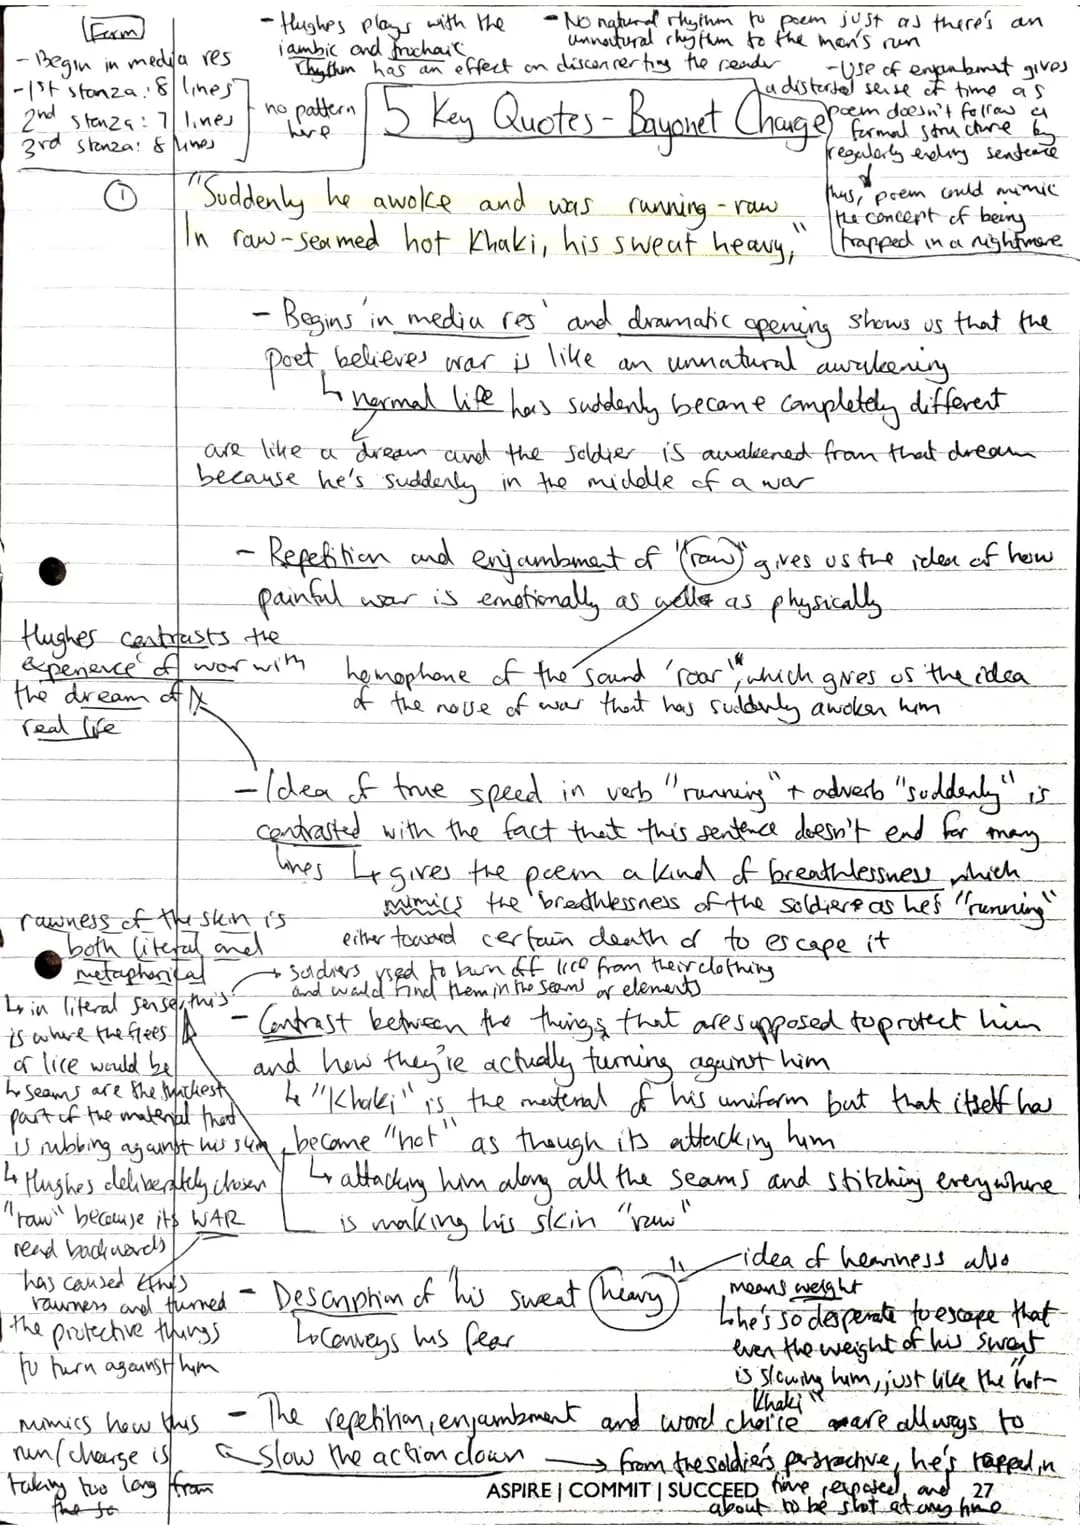 [Form]
- Begin in media res
- 1st stanza: 8 lines
2nd stanza: 7 lines
3rd stanza: 8 lines
no pattern
here
- Hughes plays with the
iambic and trochaic
rhythm has an effect on disconcerting the reader
- No natural rhythm to poem just as there's an
unnatural rhythm to the man's run
- Use of enjambment gives
a distorted sense of time as
poem doesn't follow a
formal structure by
regularly ending sentence
thus, poem could mimic
the concept of being
trapped in a nightmare
5 Key Quotes - Bayonet Charge
①
"Suddenly he awoke and was running - raw
In raw-seamed hot Khaki, his sweat heavy,"
- Begins 'in media res' and dramatic opening shows us that the
poet believes war is like an unnatural awakening
↳ normal life has suddenly became completely different
are like a dream and the soldier is awakened from that dream
because he's suddenly in the middle of a war
- Repetition and enjambment of "raw" gives us the idea of how
painful war is emotionally as well as physically
homophone of the sound 'roar', which gives us the idea
of the noise of war that has suddenly awoken him
Hughes contrasts the
experience of war with
the dream of
real life
- Idea of true speed in verb "running" + adverb "suddenly" is
contrasted with the fact that this sentence doesn't end for many
lines ↳ gives the poem a kind of breathlessness which
mimics the breathlessness of the soldier as he's "running"
either toward certain death or to escape it
rawness of the skin is
both literal and
metaphorical
↳ in literal sense, this
is where the flees
or lice would be
↳ seams are the thickest
part of the material that
is rubbing against his skin
↳ Hughes deliberately chosen
"raw" because its WAR
read backwards
has caused this
rawness and turned
the protective things
to turn against him
→ soldiers used to burn off lice from their clothing
and would find them in the seams or elements
- Contrast between the things that are supposed to protect him
and how they're actually turning against him
↳ "Khaki" is the material of his uniform but that itself has
become "hot" as though its attacking him
↳ attacking him along all the seams and stitching everywhere
is making his skin "raw"
- Description of "his sweat heavy"
↳ Conveys his fear
idea of heaviness also
means weight
↳ he's so desperate to escape that
even the weight of his sweat
is slowing him, just like the "hot-
Khaki"
- The repetition, enjambment and word choice are all ways to
slow the action down → from the soldier's perspective, he's trapped in
time, exposed, and
about to be shot at any time
mimics how this
run/charge is
taking too long from
the so
ASPIRE | COMMIT | SUCCEED
27